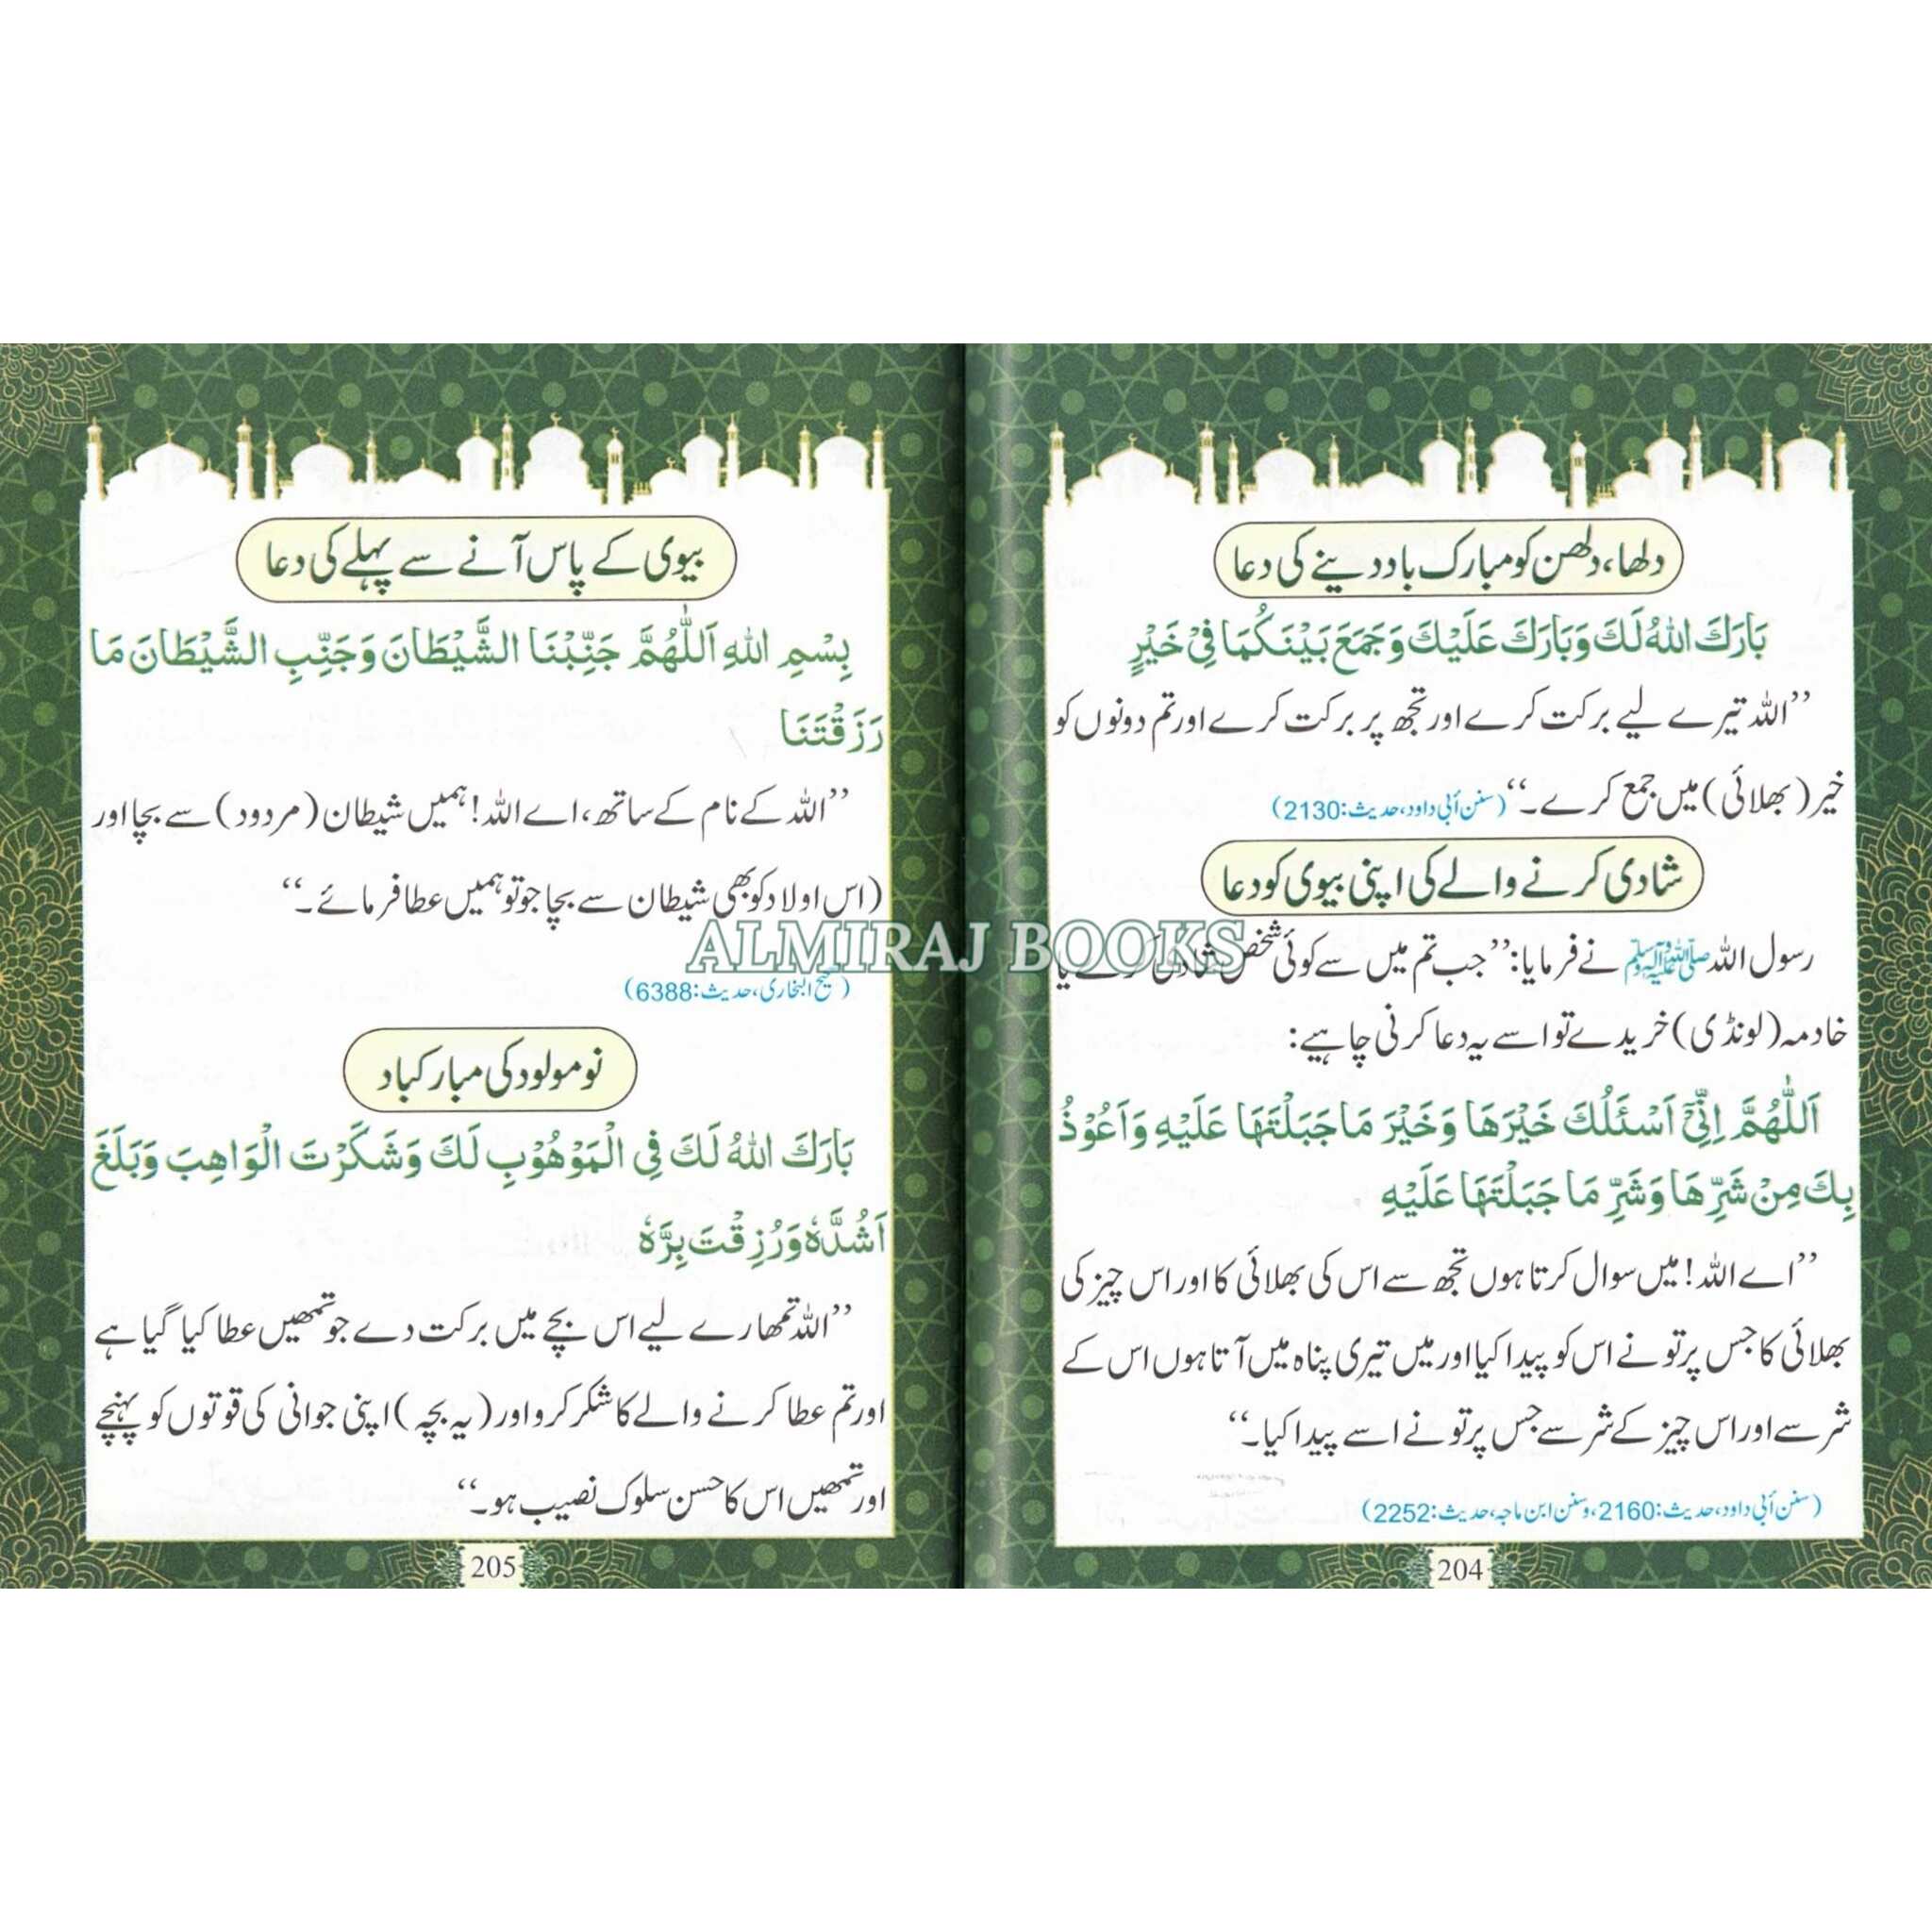 دلھا، دلھن کو مبارک باد دینے کی دعا
بَارَكَ اللهُ لَكَ وَبَارَكَ عَلَيْكَ وَجَمَعَ بَيْنَكُمَا فِيْ خَيْرٍ
’’اللہ تیرے لیے برکت کرے اور تجھ پر برکت کرے اور تم دونوں کو
خیر (بھلائی) میں جمع کرے۔‘‘ (سنن أبی داود، حدیث: 2130)
شادی کرنے والے کی اپنی بیوی کو دعا
رسول اللہ ﷺ نے فرمایا: ’’جب تم میں سے کوئی شخص شادی کرے یا
خادمہ (لونڈی) خریدے تو اسے یہ دعا کرنی چاہیے:
اَللّٰهُمَّ اِنِّيْٓ اَسْئَلُكَ خَيْرَهَا وَخَيْرَ مَا جَبَلْتَهَا عَلَيْهِ وَاَعُوْذُ
بِكَ مِنْ شَرِّهَا وَشَرِّ مَا جَبَلْتَهَا عَلَيْهِ
’’اے اللہ! میں سوال کرتا ہوں تجھ سے اس کی بھلائی کا اور اس چیز کی
بھلائی کا جس پر تو نے اس کو پیدا کیا اور میں تیری پناہ میں آتا ہوں اس کے
شر سے اور اس چیز کے شر سے جس پر تو نے اسے پیدا کیا۔‘‘
(سنن أبی داود، حدیث: 2160، وسنن ابن ماجہ، حدیث: 2252)
204
بیوی کے پاس آنے سے پہلے کی دعا
بِسْمِ اللهِ اَللّٰهُمَّ جَنِّبْنَا الشَّيْطَانَ وَجَنِّبِ الشَّيْطَانَ مَا
رَزَقْتَنَا
’’اللہ کے نام کے ساتھ، اے اللہ! ہمیں شیطان (مردود) سے بچا اور
(اس اولاد کو بھی شیطان سے بچا جو تو ہمیں عطا فرمائے۔‘‘
(صحیح البخاری، حدیث: 6388)
نومولود کی مبارکباد
بَارَكَ اللهُ لَكَ فِي الْمَوْهُوْبِ لَكَ وَشَكَرْتَ الْوَاهِبَ وَبَلَغَ
اَشُدَّهٗ وَرُزِقْتَ بِرَّهٗ
’’اللہ تمھارے لیے اس بچے میں برکت دے جو تمھیں عطا کیا گیا ہے
اور تم عطا کرنے والے کا شکر کرو اور (یہ بچہ) اپنی جوانی کی قوتوں کو پہنچے
اور تمھیں اس کا حسن سلوک نصیب ہو۔‘‘
205
ALMIRAJ BOOKS